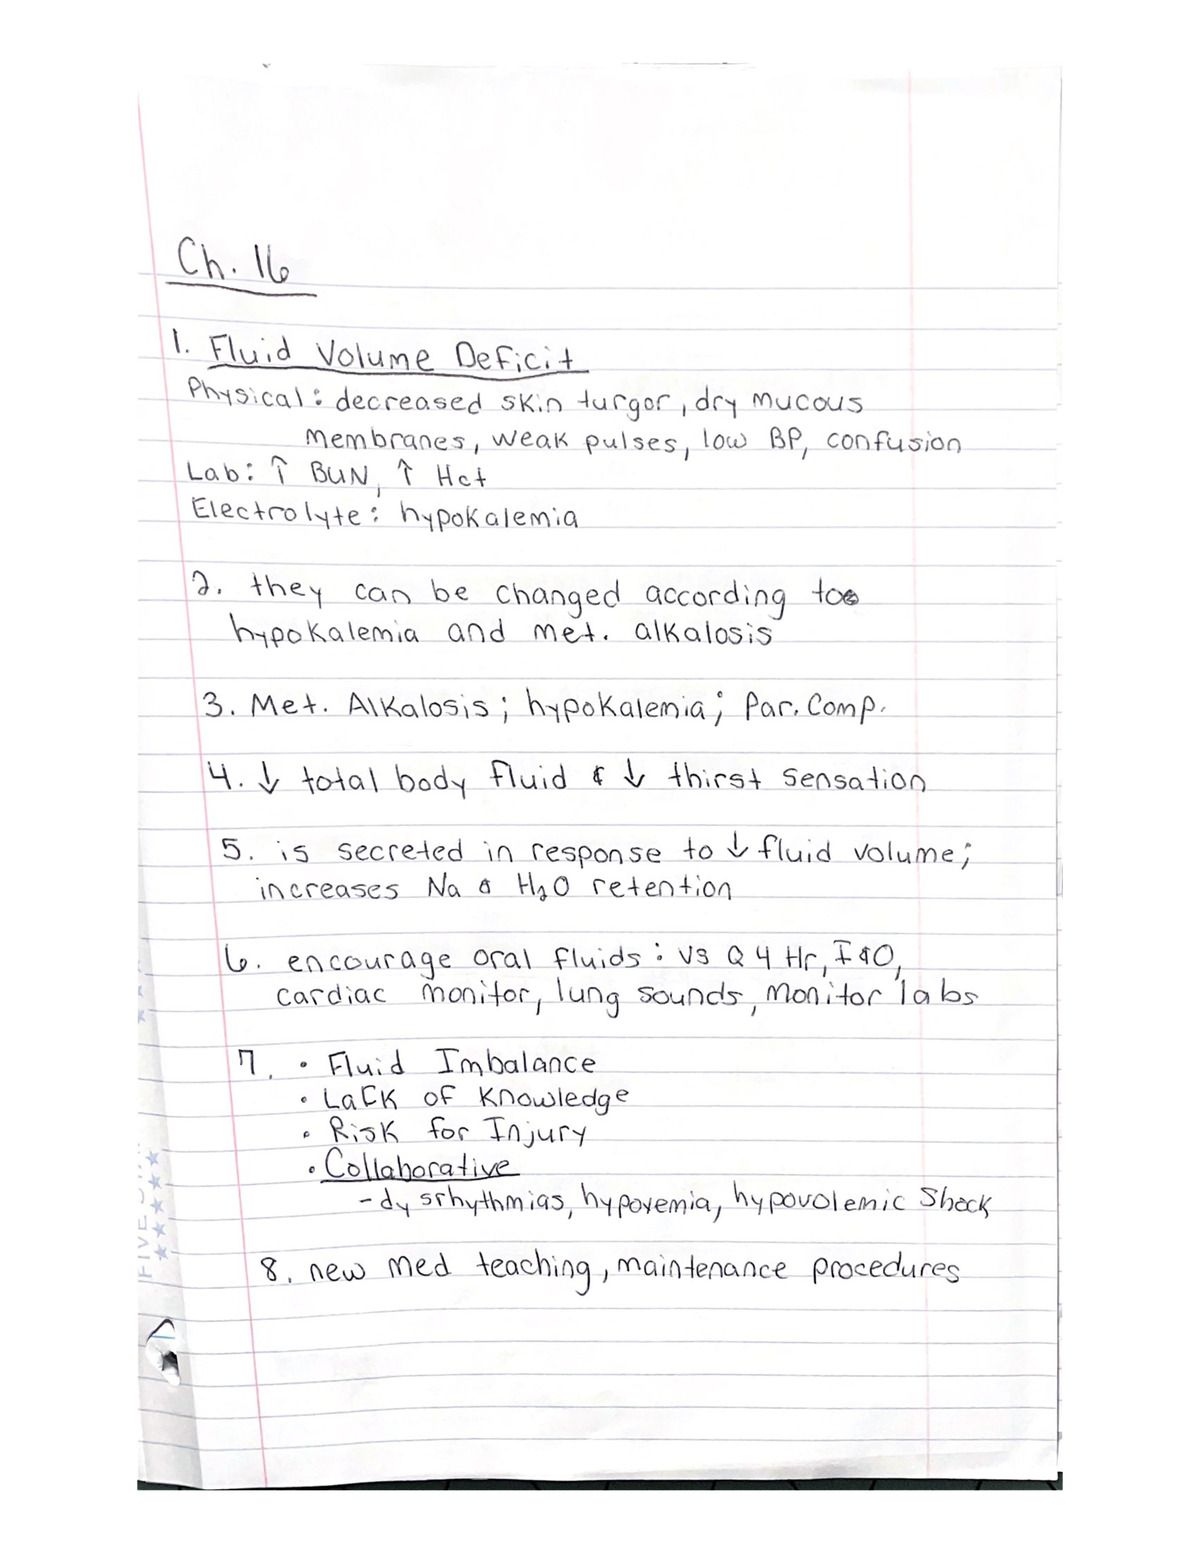 Ch. 16
1. Fluid Volume Deficit
Physical: decreased skin turgor, dry mucous
membranes, weak pulses, low BP, confusion
Lab: ↑ BUN, ↑ Hct
Electrolyte: hypokalemia
2. they can be changed according to
hypokalemia and met. alkalosis
3. Met. Alkalosis; hypokalemia; Par. Comp.
4. ↓ total body fluid & ↓ thirst sensation
5. is secreted in response to ↓ fluid volume;
increases Na & H₂O retention
6. encourage oral fluids: VS Q 4 Hr, I&O,
cardiac monitor, lung sounds, monitor labs
7. • Fluid Imbalance
• Lack of Knowledge
• Risk for Injury
• Collaborative
- dysrhythmias, hypoxemia, hypovolemic shock
8. new med teaching, maintenance procedures
FIVE